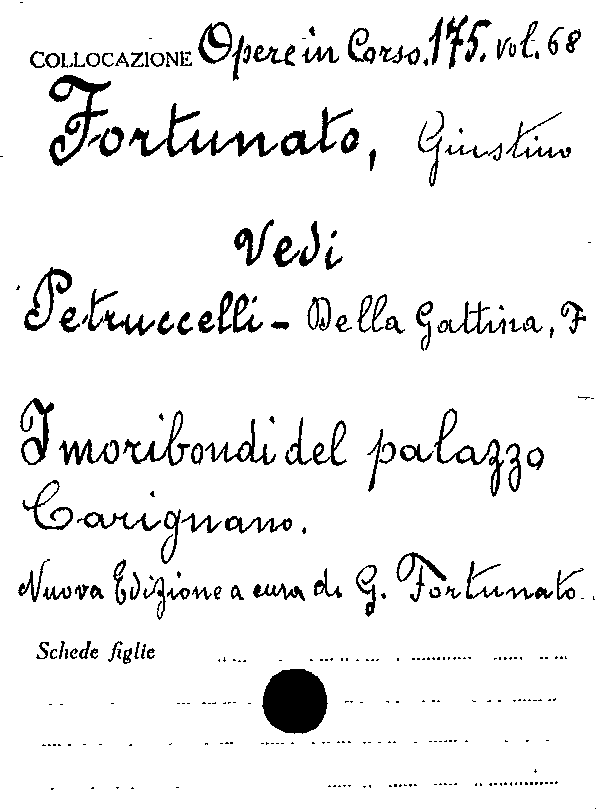 COLLOCAZIONE Opere in Corso. 175. vol. 68
Fortunato, Giustino
Vedi
Petruccelli - Della Gattina, F
I moribondi del palazzo
Carignano.
Nuova Edizione a cura di G. Fortunato.
Schede figlie